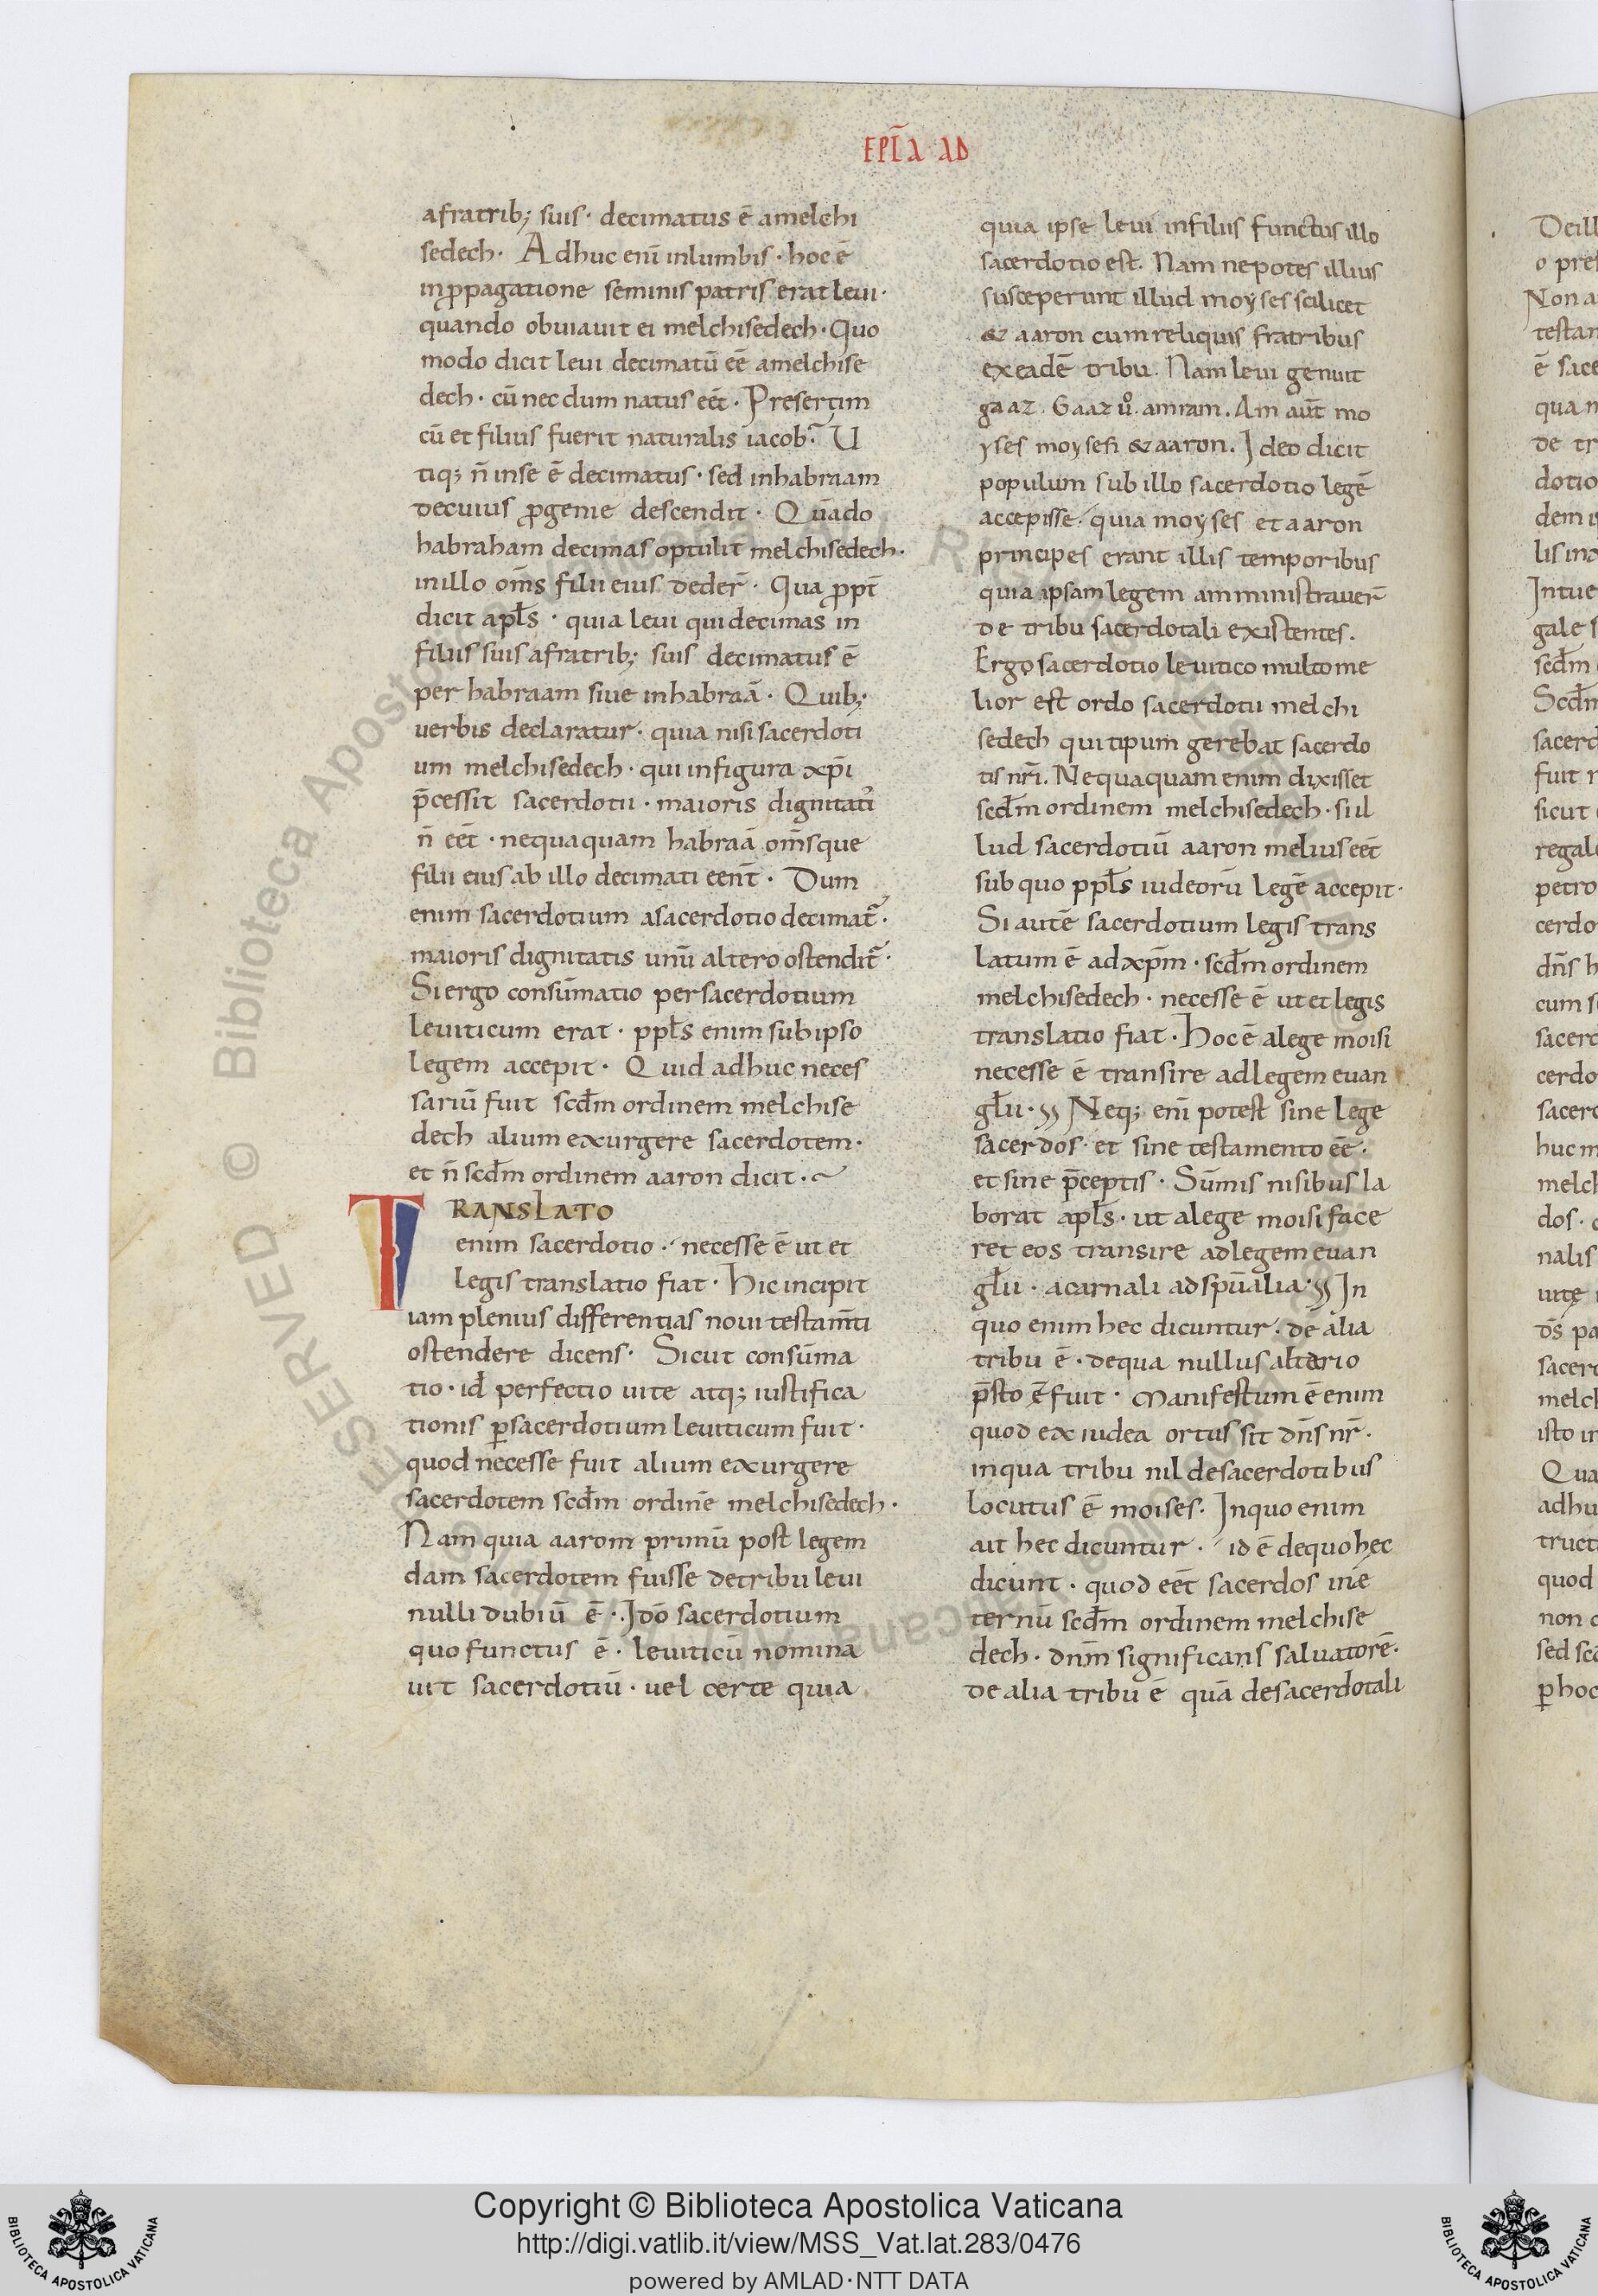 EPL̄A AD
afratrib; suis· decimatus ē amelchi
sedech· Adhuc eni̅ inlumbis· hoc ē
inp̄pagatione seminis patris erat leui·
quando obuiauit ei melchisedech· Quo
modo dicit leui decimatū eē amelchise
dech· cū nec dum natus eēt· Presertim
cū et filius fuerit naturalis iacob? U
tiq; n̄ inse ē decimatus· sed inhabraam
decuius p̄genie descendit· Quādo
habraham decimas optulit melchisedech·
inillo om̄s filii eius deder̄· Qua p̄pt̄
dicit apl̄s· quia leui qui decimas in
filiis suis afratrib; suis decimatus ē
per habraam siue inhabraā· Quib;
uerbis declaratur· quia nisi sacerdoti
um melchisedech· qui infigura xp̄i
p̄cessit sacerdotii· maioris dignitati
n̄ eēt· nequaquam habraā om̄sque
filii eius ab illo decimati eent̄· Dum
enim sacerdotium asacerdotio decimat̄·
maioris dignitatis unū altero ostendit̄·
Si ergo consūmatio per sacerdotium
leuiticum erat· ppl̄s enim sub ipso
legem accepit· Quid adhuc neces
sariū fuit scd̄m ordinem melchise
dech alium exurgere sacerdotem·
et n̄ scd̄m ordinem aaron dicit·
TRANSLATO
enim sacerdotio· necesse ē ut et
legis translatio fiat· Hic incipit
iam plenius differentias noui testam̄ti
ostendere dicens· Sicut consūma
tio· id̄ perfectio uite atq; iustifica
tionis p̄sacerdotium leuiticum fuit·
quod necesse fuit alium exurgere
sacerdotem scd̄m ordinē melchisedech·
Nam quia aarom primū post legem
dam sacerdotem fuisse detribu leui
nulli dubiū ē· Idō sacerdotium
quo functus ē· leuiticū nomina
uit sacerdotiū· uel certe quia
quia ipse leui infiliis functus illo
sacerdotio est. Nam nepotes illius
susceperunt illud moyses scilicet
& aaron cum reliquis fratribus
ex eadē tribu. Nam leui genuit
gaaz. Gaaz uͦ. amram. Am aūt mo
yses moysesi & aaron. Ideo dicit
populum sub illo sacerdotio legē
accepisse· quia moyses et aaron
principes erant illis temporibus
quia ipsam legem amministrauer̄
de tribu sacerdotali existentes.
Ergo sacerdotio leuitico multo me
lior est ordo sacerdotii melchi
sedech qui tipum gerebat sacerdo
tis nr̄i. Nequaquam enim dixisset
scd̄m ordinem melchisedech· si il
lud sacerdotiū aaron melius eēt
sub quo ppl̄s iudeorū legē accepit·
Si autē sacerdotium legis trans
latum ē ad xp̄m· scd̄m ordinem
melchisedech· necesse ē ut et legis
translatio fiat· Hoc ē alege moisi
necesse ē transire ad legem euan
gl̄ii· Neq; eni̅ potest sine lege
sacerdos· et sine testamento eē·
et sine p̄ceptis· Sūmis nisibus la
borat apl̄s· ut alege moisi face
ret eos transire ad legem euan
gl̄ii· acarnali ad spūalia· In
quo enim hec dicuntur· de alia
tribu ē· dequa nullus alterio
p̄sto fuit· Manifestum ē enim
quod ex iudea ortus sit dn̄s nr̄·
inqua tribu nil desacerdotibus
locutus ē moises· Inquo enim
ait hec dicuntur· id ē dequo hec
dicunt· quod eēt sacerdos in e
ternū scd̄m ordinem melchise
dech· dn̄m significans saluatorē·
de alia tribu ē quā desacerdotali
Deill
o pre
Non a
testan
ē sace
qua n
de tr
dotio
dem i
lis ina
Intue
gale s
scd̄m
Scd̄m
sacerd
fuit
sicut
regale
petro
cerdo
dn̄s h
cum s
sacerd
cerdo
sacerd
huc m
melch
dos·
nalis
uite
d̄s pa
sacerd
melch
isto in
Qua
adhu
truct
quod
non
sed scd
p̄ hoc
Copyright © Biblioteca Apostolica Vaticana
http://digi.vatlib.it/view/MSS_Vat.lat.283/0476
powered by AMLAD·NTT DATA
BIBLIOTECA APOSTOLICA VATICANA
BIBLIOTECA APOSTOLICA VATICANA